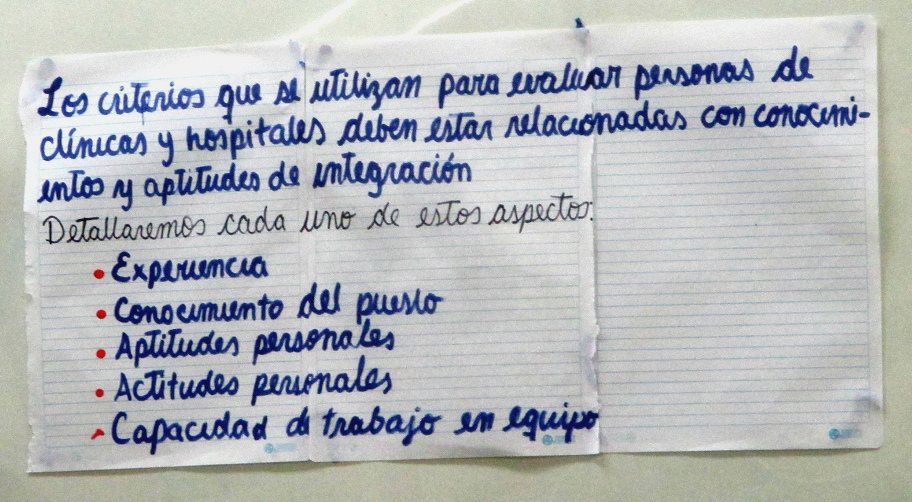 Los criterios que se utilizan para evaluar personas de
clínicas y hospitales deben estar relacionadas con conocimi-
entos y aptitudes de integración
Detallaremos cada uno de estos aspectos:
• Experiencia
• Conocimiento del puesto
• Aptitudes personales
• Actitudes personales
• Capacidad de trabajo en equipo